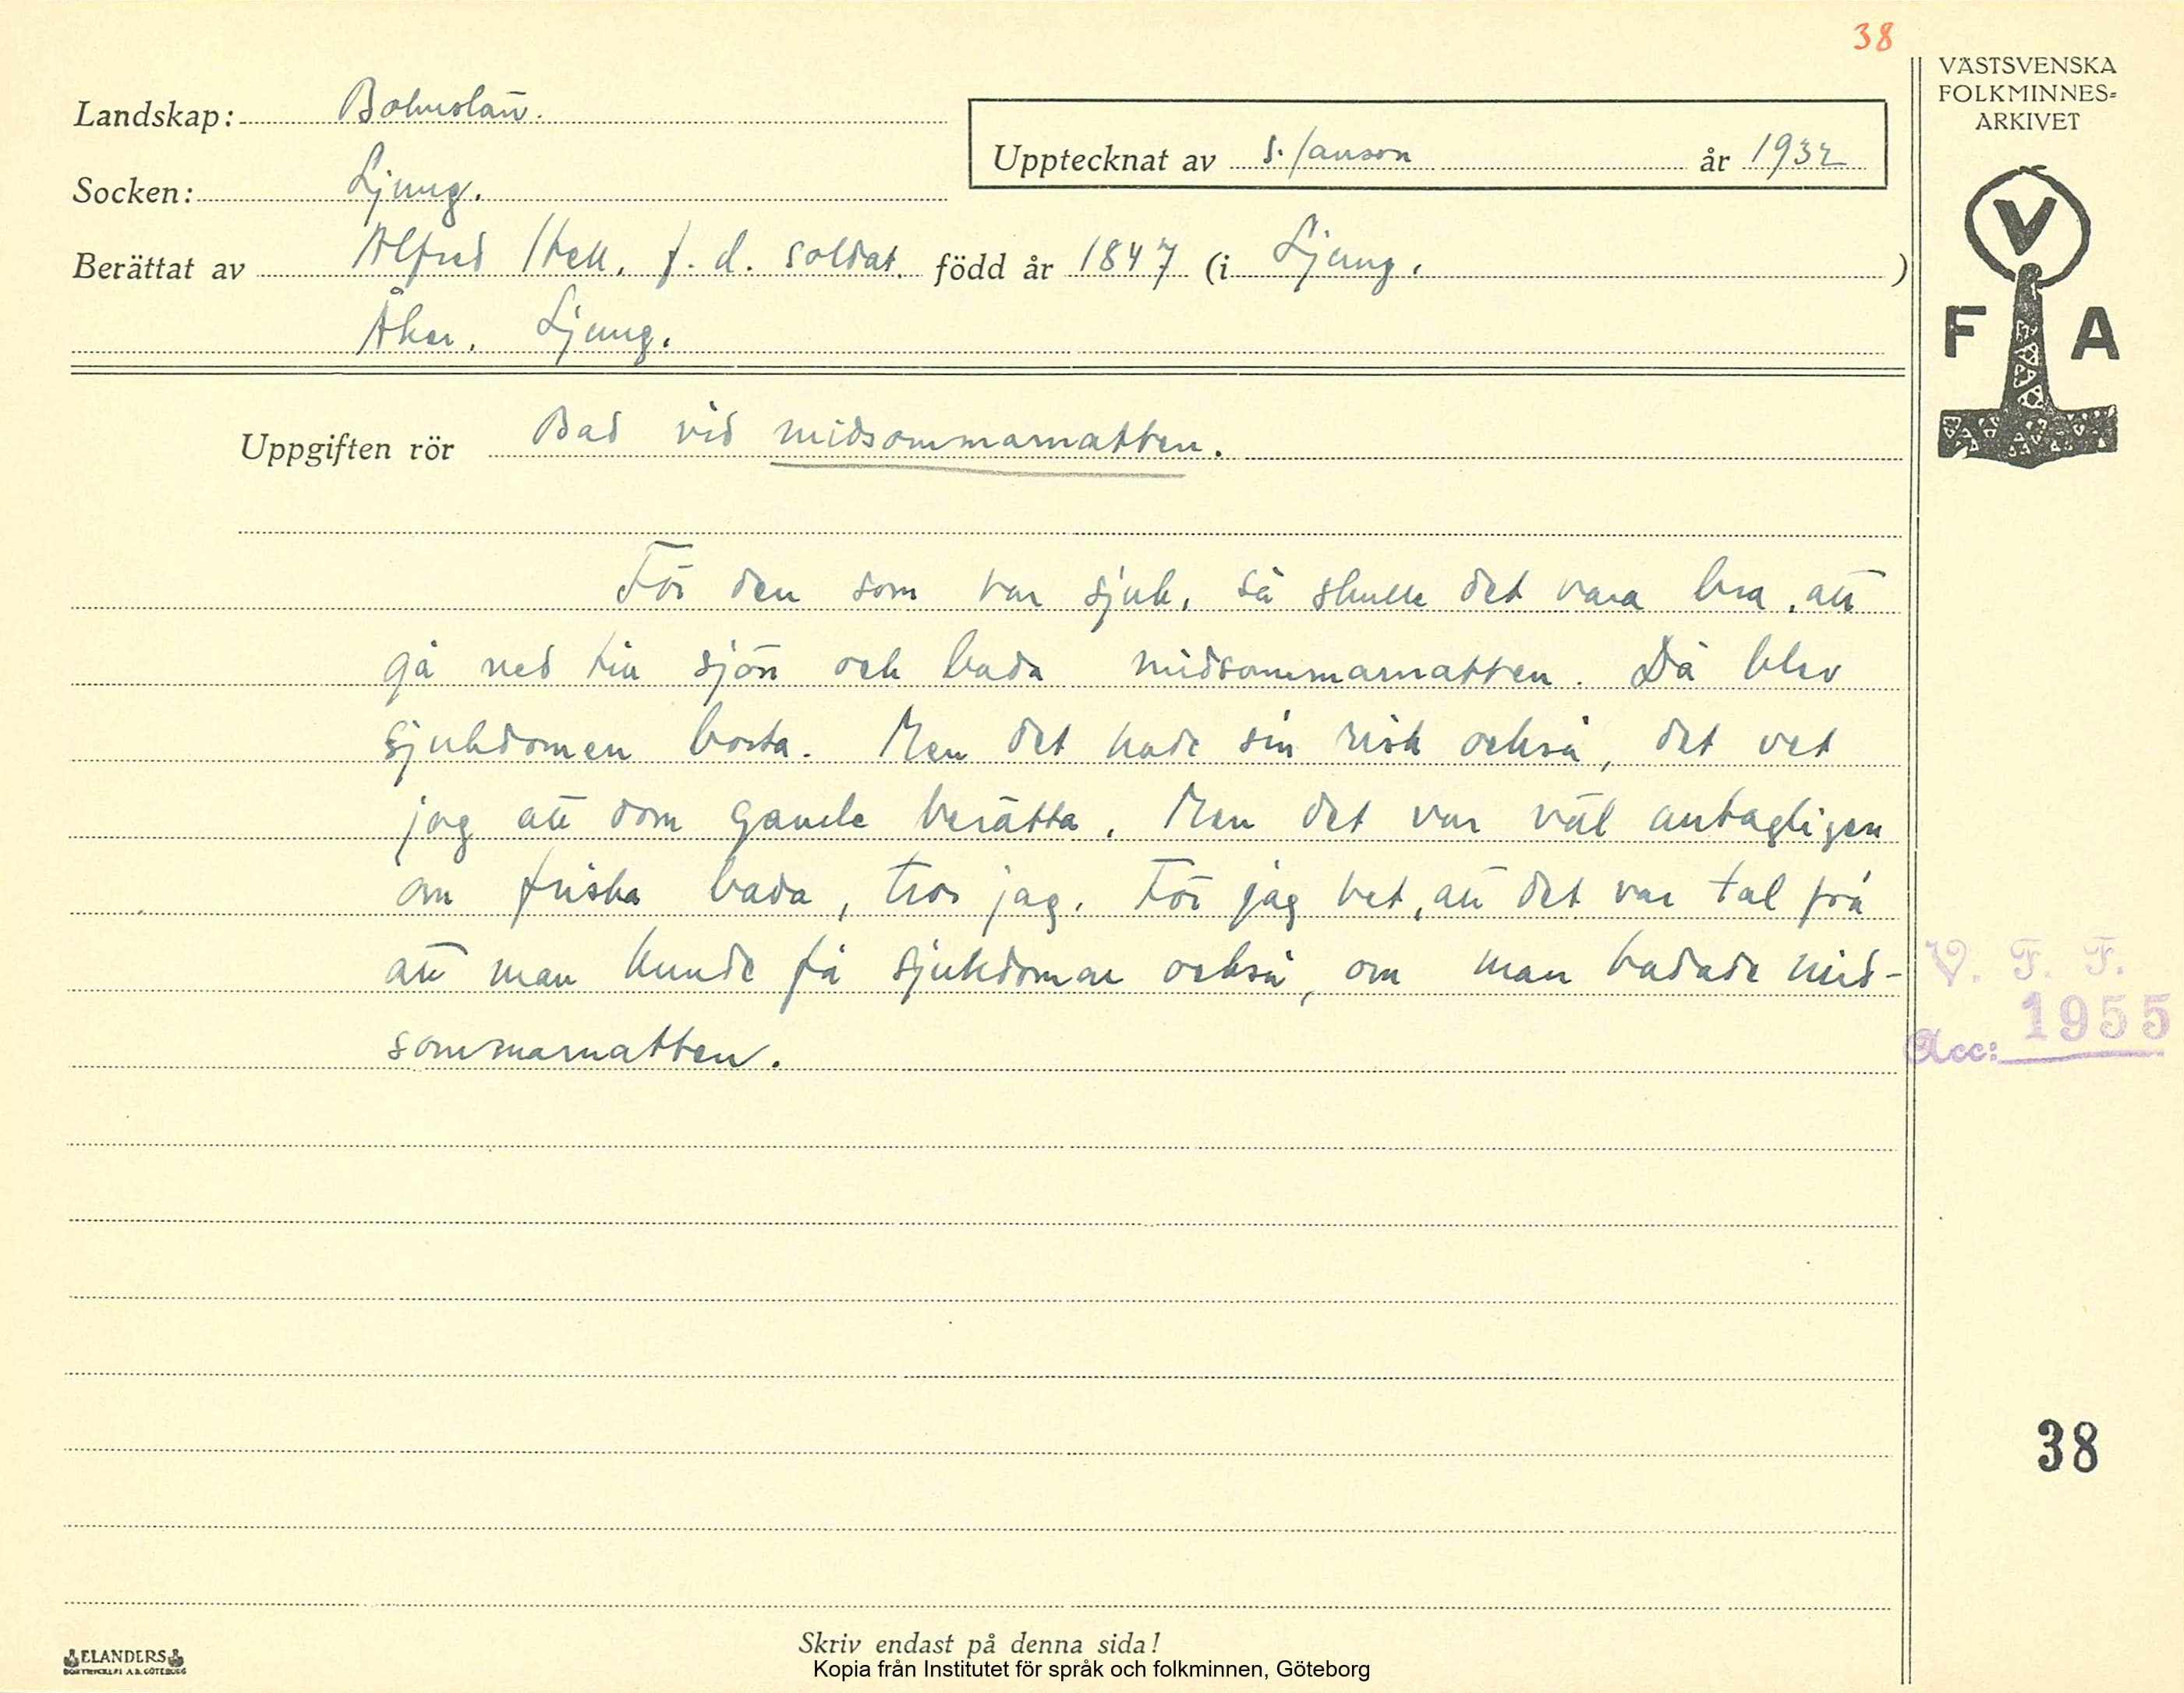 38
VÄSTSVENSKA
FOLKMINNES=
ARKIVET
Landskap: Bohuslän.
Upptecknat av S. Janson år 1932
Socken: Ljung.
Berättat av Alfred f. d. soldat. född år 1847 (i Ljung. )
Åker. Ljung.
V
F A
Uppgiften rör Bad vid midsommarnatten.
För den som var sjuk, så skulle det vara bra, att
gå ned till sjön och bada midsommarnatten. Då blev
sjukdomen borta. Men det hade sin risk också, det vet
jag att dom gamle berätta. Men det var väl antagligen
om friska bada, tror jag. För jag vet, att det var tal frå
att man kunde få sjukdomar också, om man badade mid-
sommarnatten.
V. F. F.
Acc: 1955
38
Skriv endast på denna sida!
ELANDERS
BOKTRYCKERI A.B. GÖTEBORG
Kopia från Institutet för språk och folkminnen, Göteborg